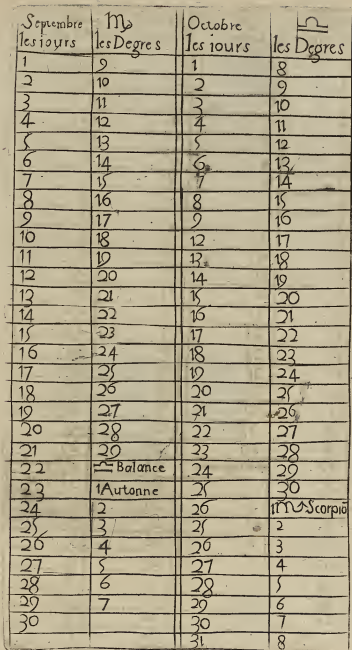 Septembre ♍ Octobre ♎
les iours les Degres les iours les Degres
1 9 1 8
2 10 2 9
3 11 3 10
4 12 4 11
5 13 5 12
6 14 6 13
7 15 7 14
8 16 8 15
9 17 9 16
10 18 12 17
11 19 13 18
12 20 14 19
13 21 15 20
14 22 16 21
15 23 17 22
16 24 18 23
17 25 19 24
18 26 20 25
19 27 21 26
20 28 22 27
21 29 23 28
22 ♎ Balance 24 29
23 1 Autonne 25 30
24 2 26 1 ♏ Scorpiō
25 3 25 2
26 4 26 3
27 5 27 4
28 6 28 5
29 7 29 6
30 30 7
31 8